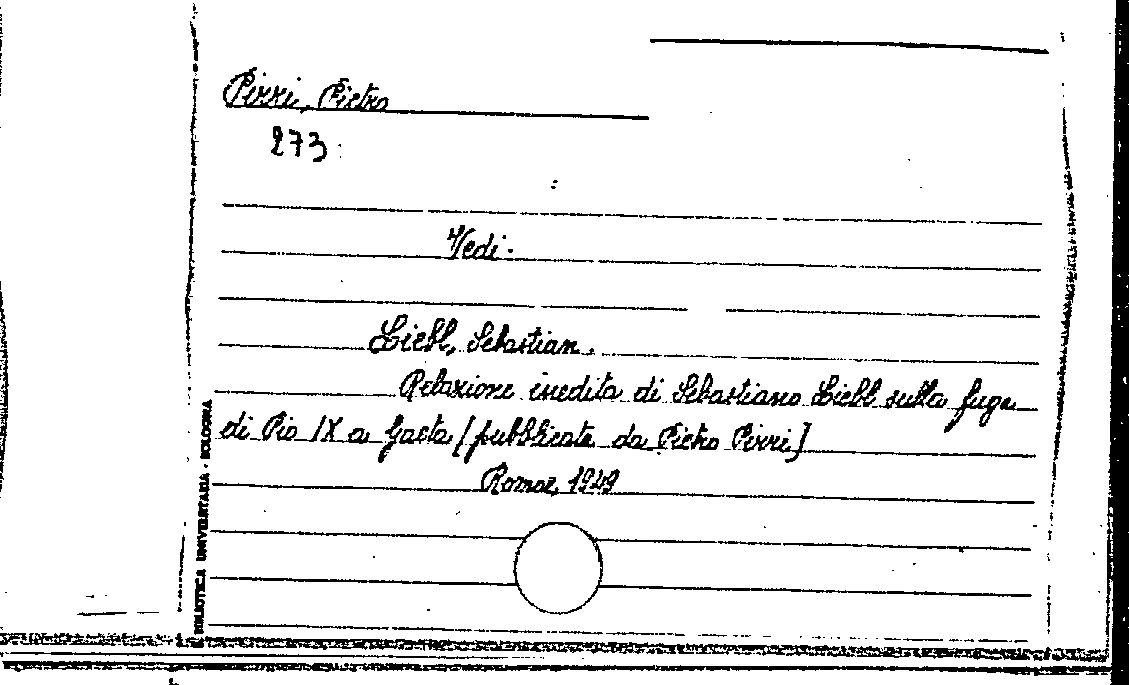 Pirri, Pietro
273
Vedi:
Liebl, Sebastian.
Relazione inedita di Sebastiano Liebl sulla fuga
di Pio IX a Gaeta [pubblicata da Pietro Pirri]
Romae, 1949
BIBLIOTECA UNIVERSITARIA - BOLOGNA